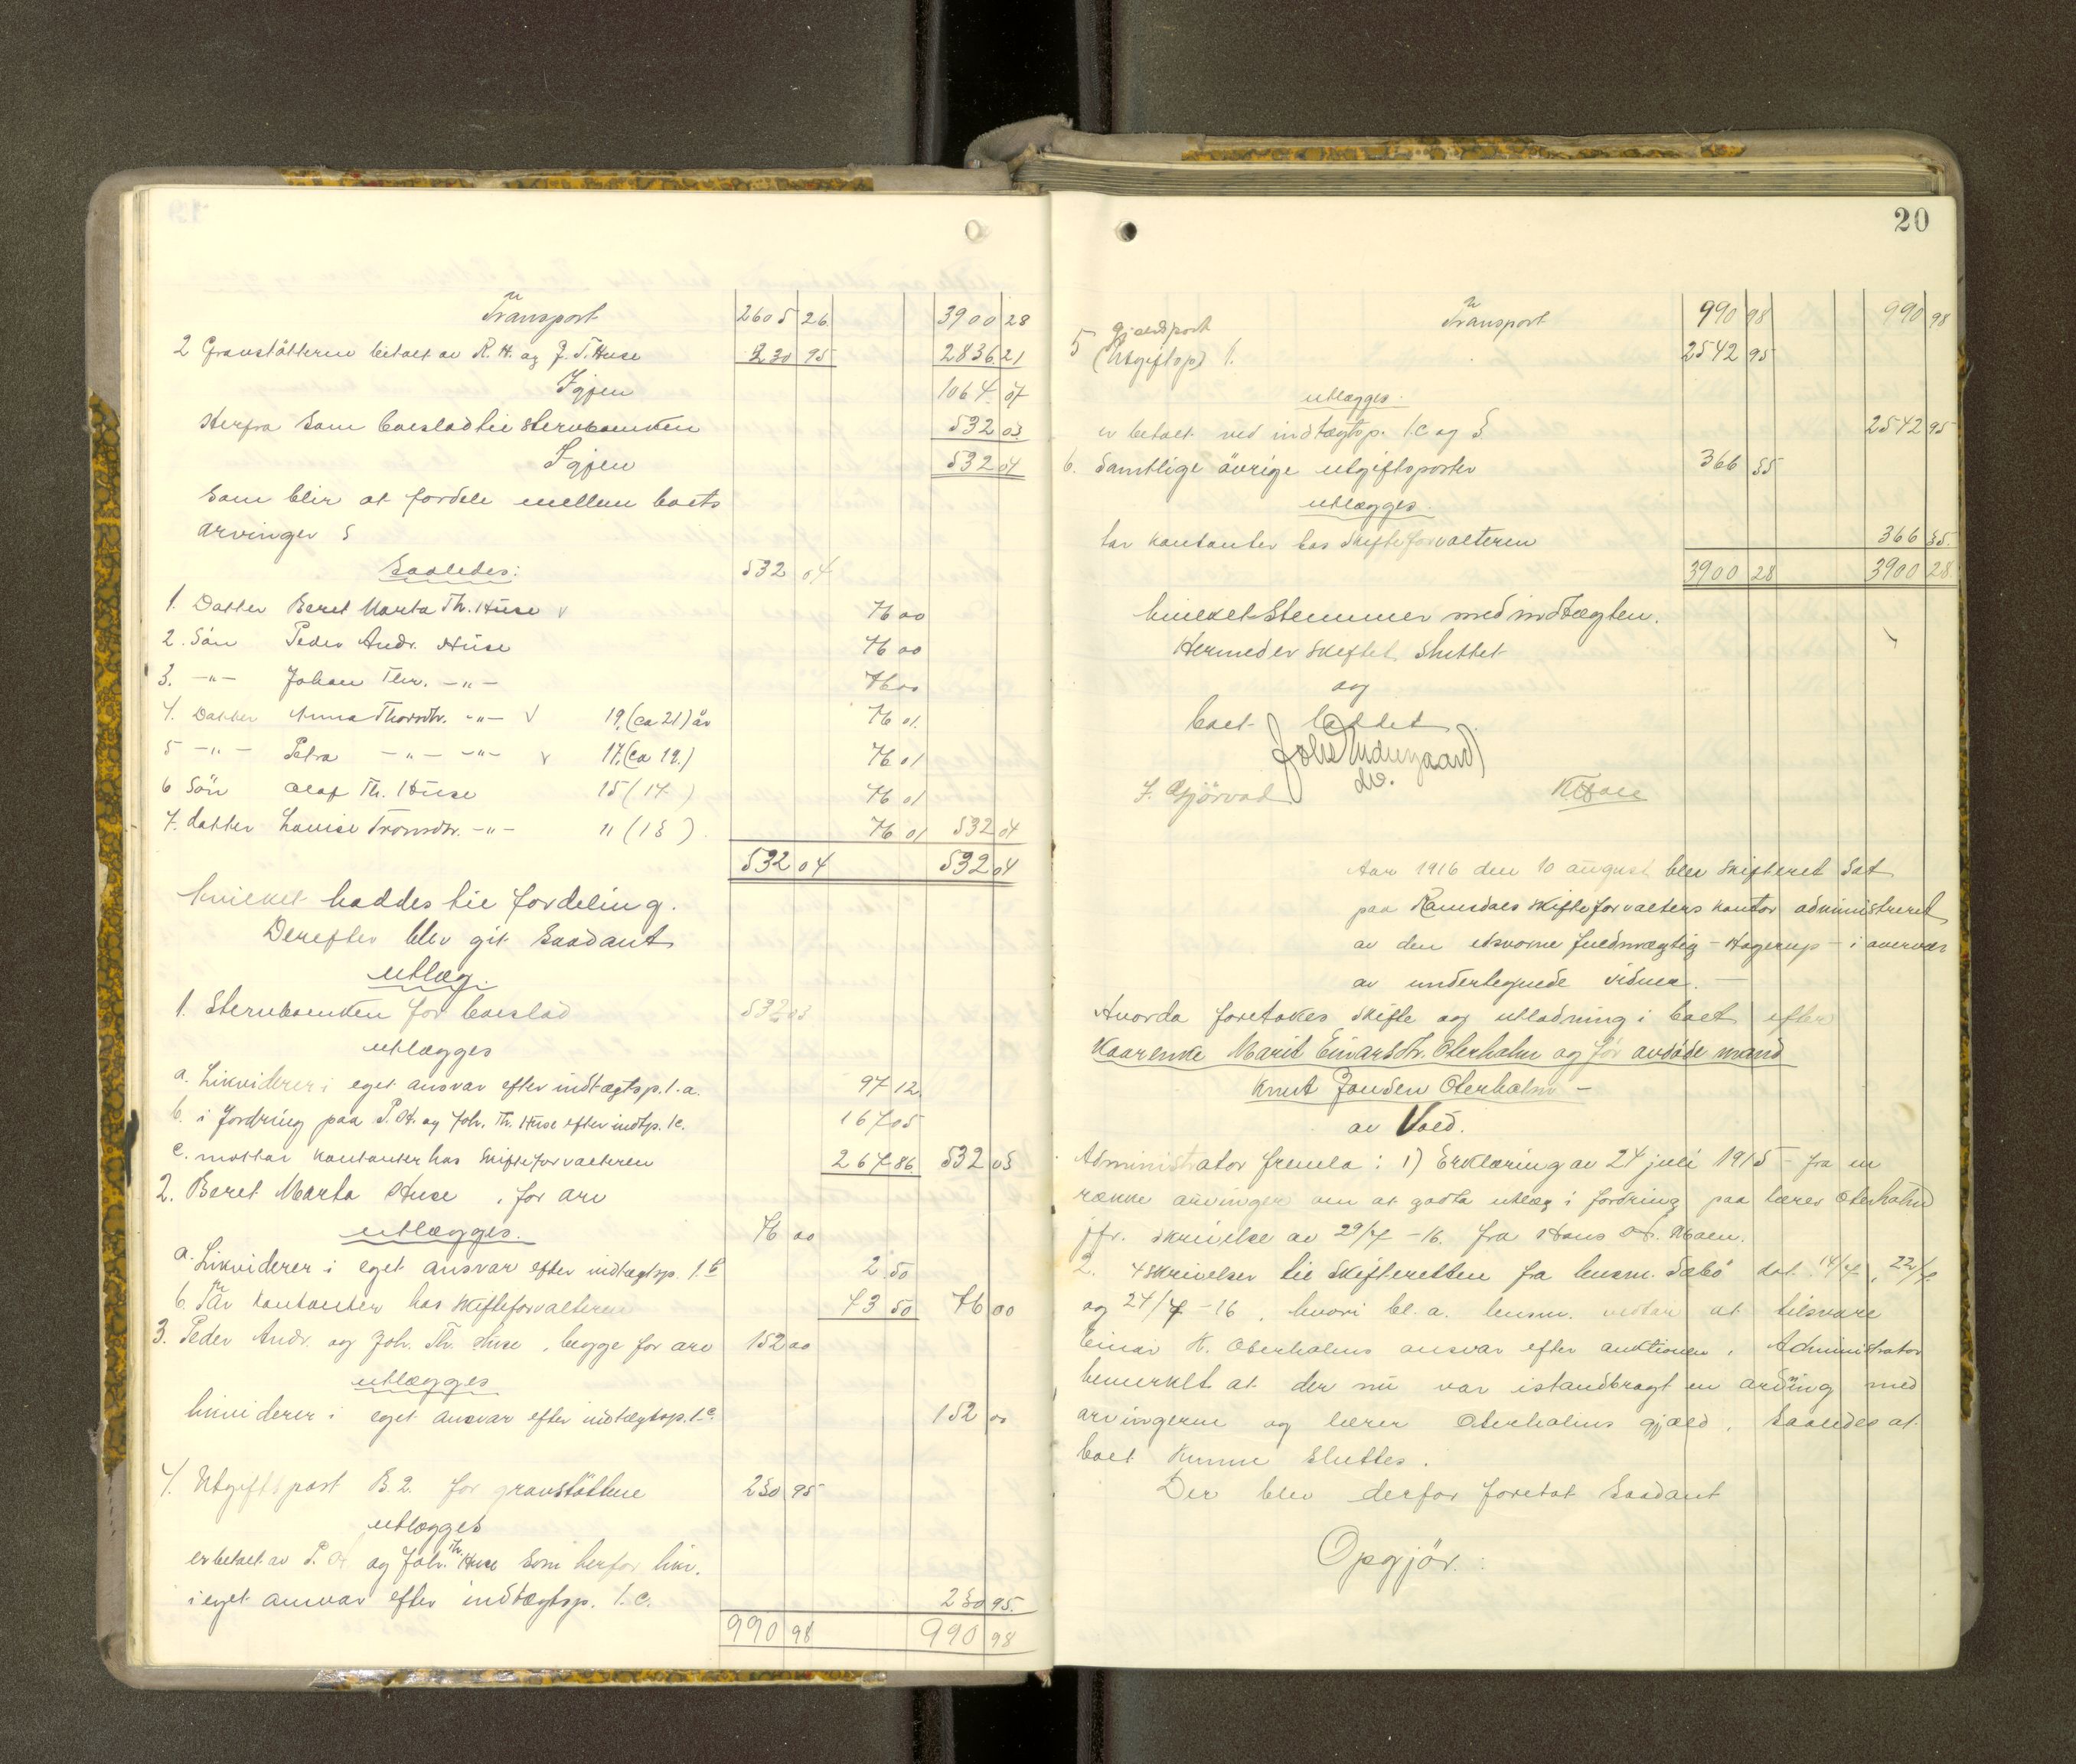 Transport 2605 26 3900 28
2 Gravstötterne betalt av P. H. og J. T. Huse 230 95 2836 21
Igjen 1064 07
Herfra som boeslod til stervboenken 532 03
Igjen 532 04
som blir at fordele mellem boets
arvinger
Saaledes: 532 04
1. Datter Beret Marta Th. Huse v 76 00
2. Sön Peder Andr. Huse 76 00
3. -"- Johan Thr. -"- 76 00
4. Datter Anna Thorsdtr. -"- v 19 (ca 21) år 76 01
5 -"- Petra -"- -"- v 17 (ca 19.) 76 01
6 Sön Olaf Th. Huse 15 (17 ) 76 01
7. datter Louise Tromsdtr. -"- 11 (13 ) 76 01 532 04
532 04 532 04
hvilket haddes til fordeling.
Derefter blev git saadant
utlæg.
1. Stervboenken for boeslod 532 03
utlægges
a. Likviderer i eget ansvar efter indtægtsp. 1. a. 97 12
b. i fordring paa P. H. og Joh. Th. Huse efter indtp. 1c. 167 05
c. mottar kontanter hos Skifteforvalteren 267 86 532 03
2. Beret Marta Huse, for arv
utlægges. 76 00
a. Likviderer i eget ansvar efter indtægtsp. 1. b 2 50
b. Får kontanter hos Skifteforvalteren 73 50 76 00
3. Peder Andr. og Joh. Th. Huse, begge for arv 152 00
utlægges
likviderer i eget ansvar efter indtægtsp. 1. c. 152 00
4. Utgiftspost B. 2. for gravstöttene 230 95
utlægges
er betalt av P. H og Joh. Th. Huse som herfor likv.
i eget ansvar efter indtægtsp. 1. c. 230 95.
990 98 990 98
20
Transport 990 98 990 98
5 Gjældspost
(Utgiftsp) 1. 2542 95
utlægges.
er betalt ved indtægtsp. 1. c og 3 2542 95
6. Samtlige övrige utgiftsposter 366 35
utlægges.
har kontanter hos Skifteforvalteren 366 35.
3900 28 3900 28
hvilket stemmer med indtægten.
Hermed er skiftet sluttet
og
boet
J. Gjörvad
Aar 1916 den 10 august blev skifteret sat
paa Romsdals skifteforvalters kontor administreret
av den edsvorne fuldmægtig - Hagerup - i overvær
av undertegnede vidner. -
Hvorda foretokes skifte og utlodning i boet efter
Kaarenke Marit Einarsdtr. Oterholm og för avdöde mand
Knut Jonsen Oterholm -
av Vold.
Administrator fremla: 1) Erklæring av 24 juli 1915 - fra en
række arvinger om at godta utlæg i fordring paa lærer Oterholm
jfr. skrivelse av 29/7 - 16. fra Hans H. Moen.
2. 4 skrivelser til Skifteretten fra lensm. Sæbö dat. 14/7, 22/7
og 24/7 - 16, hvori bl. a. lensm. vedtar at tilsvare
Einar K. Oterholms ansvar efter auktionen. Administrator
bemerket at der nu var istandbragt en ordning med
arvingerne og lærer Oterholms gjæld, saaledes at
boet kunne sluttes.
Der blev derfor foretat saadant
Opgjör: